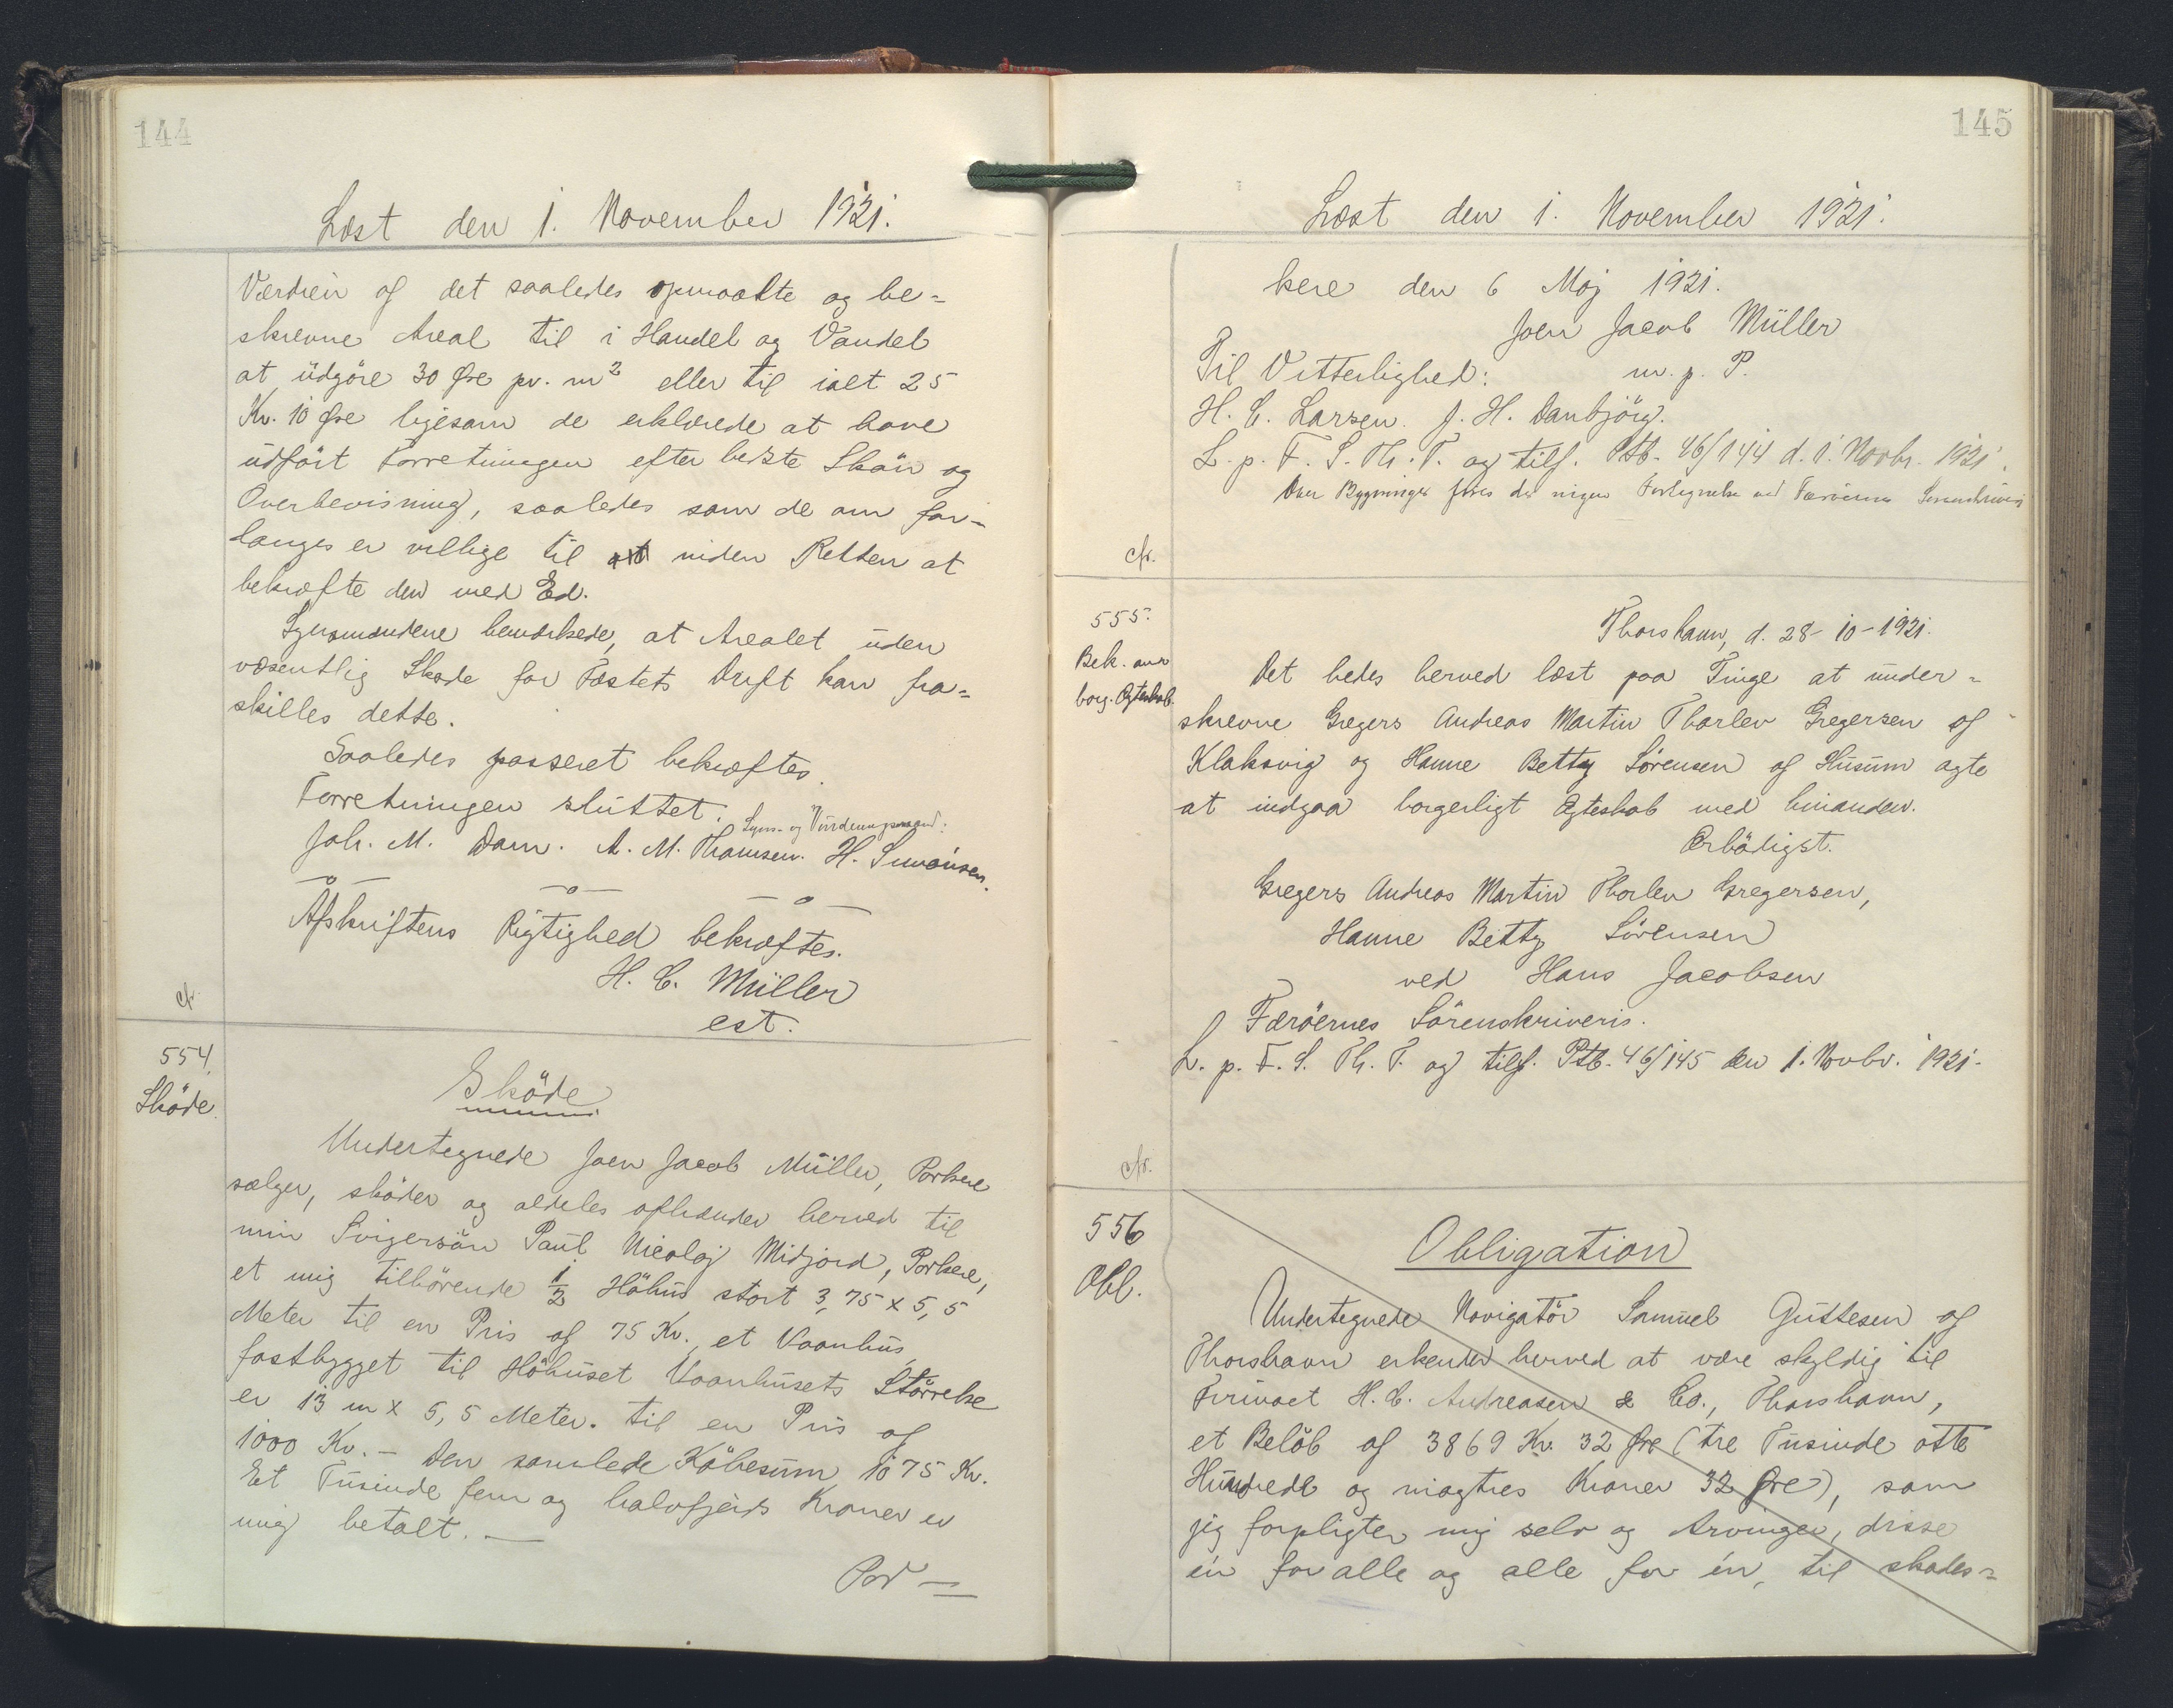 144
Læst den 1. November 1921.
Værdien af det saaledes opmaalte og be-
skrevne Areal til i Handel og Vandel
at üdgöre 30 Øre pr. m² eller til ialt 25
Kr. 10 Øre ligesom de erklærede at have
üdfört Forretningen efter bedste Skön og
Overbevisning, saaledes som de om for-
langes er villige til inden Retten at
bekræfte den med Ed.
Synsmændene bemærkede, at Arealet üden
væsentlig Skade for Fæstets Drift kan fra-
skilles dette.
Saaledes passeret bekræftes.
Forretningen slüttet.
Syns- og Vürderingsmænd:
Joh. M. Dam. A. M. Thomsen. H. Simonsen.
Afskriftens Rigtighed bekræftes.
H. C. Müller
est.
cfr.
554.
Sköde.
Sköde
Undertegnede Joen Jacob Müller, Porkere
sælger, sköder og aldeles afhænder herved til
min Svigersön Paül Nicolaj Midjord, Porkere,
et mig tilhörende 1/2 Höhüs stort 3,75 x 5,5
Meter til en Pris af 75 Kr., et Vaanhüs
fastbygget til Höhüset Vaanhüsets Störrelse
er 13 m x 5,5 Meter. til en Pris af
1000 Kr. – Den samlede Köbesüm 1075 Kr.
Et Tüsinde fem og halvfjerds Kroner er
mig betalt. —
Por =
145
Læst den 1. November 1921.
kere den 6 Maj 1921.
Joen Jacob Müller
Til Vitterlighed: m. p. P.
H. C. Larsen. J. H. Danbjörg.
L. p. F. S. Th. T. og tilf. Ptb. 46/144 d. 1. Novbr. 1921.
Over Bygninger föres der ingen Fortegnelse ved Færöernes Sorenskriveri
cfr.
555.
Bek. om
borg. Ægteskab.
Thorshavn, d. 28-10-1921.
Det bedes herved læst paa Tinge at ünder-
skrevne Gregers Andreas Martin Thorlev Gregersen af
Klaksvig og Hanne Betty Sörensen af Hüsüm agte
at indgaa borgerligt Ægteskab med hinanden.
Ærbödigst.
Gregers Andreas Martin Thorlev Gregersen,
Hanne Betty Sörensen
ved Hans Jacobsen
f Færöernes Sörenskriveris.
L. p. F. S. Th. T. og tilf. Ptb. 46/145 den 1. Novbr. 1921.
cfr.
556
Obl.
Obligation
Undertegnede Navigatör Samüel Güttesen af
Thorshavn erkender herved at være skyldig til
Firmaet H. C. Andreasen & Co., Thorshavn,
et Belöb af 3869 Kr. 32 Øre (tre Tüsinde otte
Hündrede og niogtres Kroner 32 Øre), som
jeg forpligter mig selv og Arvinger, disse
én for alle og alle for én, til skades=